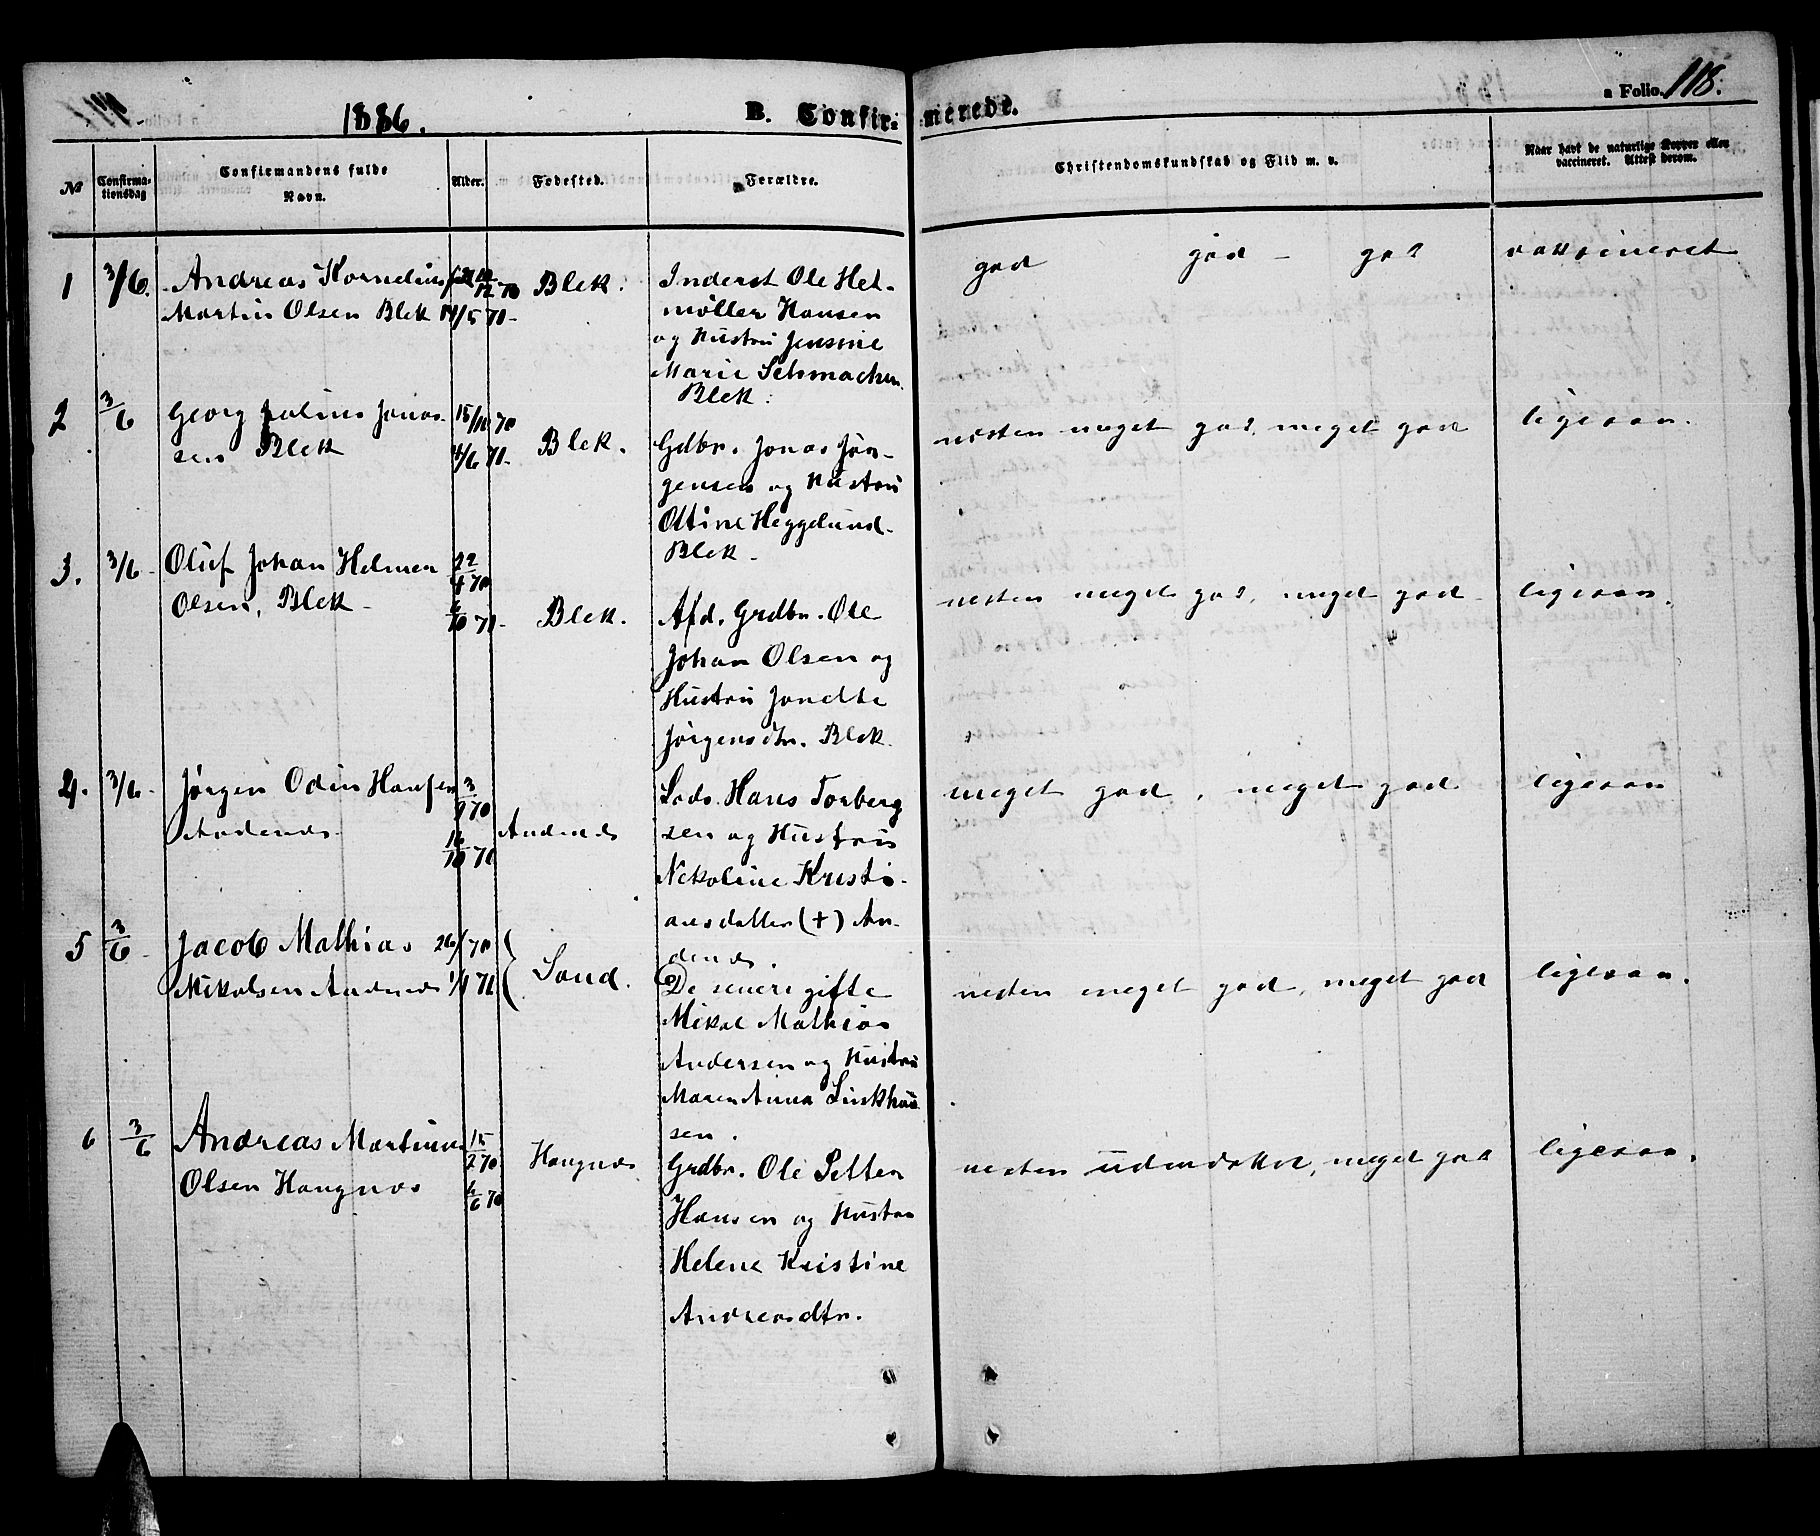 1886.
B. Confir-
merede.
a Folio. 118.
No
Confirma-
tionsdag
Confirmandens fulde
Navn.
Alder.
Fødested.
Forældre.
Christendomskundskab og Flid m. v.
Naar havt de naturlige Kopper eller
vaccineret. Attest derom.
1 3/6. Andreas Kornelius
Martin Olsen Blek 14/5 71.
Blek.
Inderst Ole Hel-
møller Hansen
og Hustru Jensine
Marie
Blek.
god god - god
vaksineret
2 3/6 Georg Julius Jonas- 15/10 70
sen Blek 4/6 71.
Blek.
Gdbr. Jonas Jør-
gensen og Hustru
Ottine Heggelund
Blek.
nesten meget god, meget god
ligesaa.
3. 3/6 Oluf Johan Helmer 22/4 70
Olsen, Blek 71.
Blek.
Afd. Grdbr. Ole
Johan Olsen og
Hustru Jondthe
Jørgensdtr. Blek.
nesten meget god, meget god
ligesaa.
4. 3/6 Jørgen Odin Hansen 3/9 70
Andenes 16/10 70
Andenes
Lods. Hans Torberg
sen og Hustru
Nikoline Kristi-
ansdatter (+) An-
denes.
meget god, meget god
ligesaa
5 3/6 Jacob Mathias 26/ 70
Mikalsen Andenes 71
Sand.
De senere gifte
Mikal Mathias
Andersen og Hustru
Maren Anna Linkhau
sen.
nesten meget god, meget god
ligesaa.
6 3/6 Andreas Martinus 15/2 70
Olsen Haugnes 6/6 70
Haugnes
Grdbr. Ole Petter
Hansen og Hustru
Helene Kristine
Andreasdtr.
nesten udmerket, meget god
ligesaa.